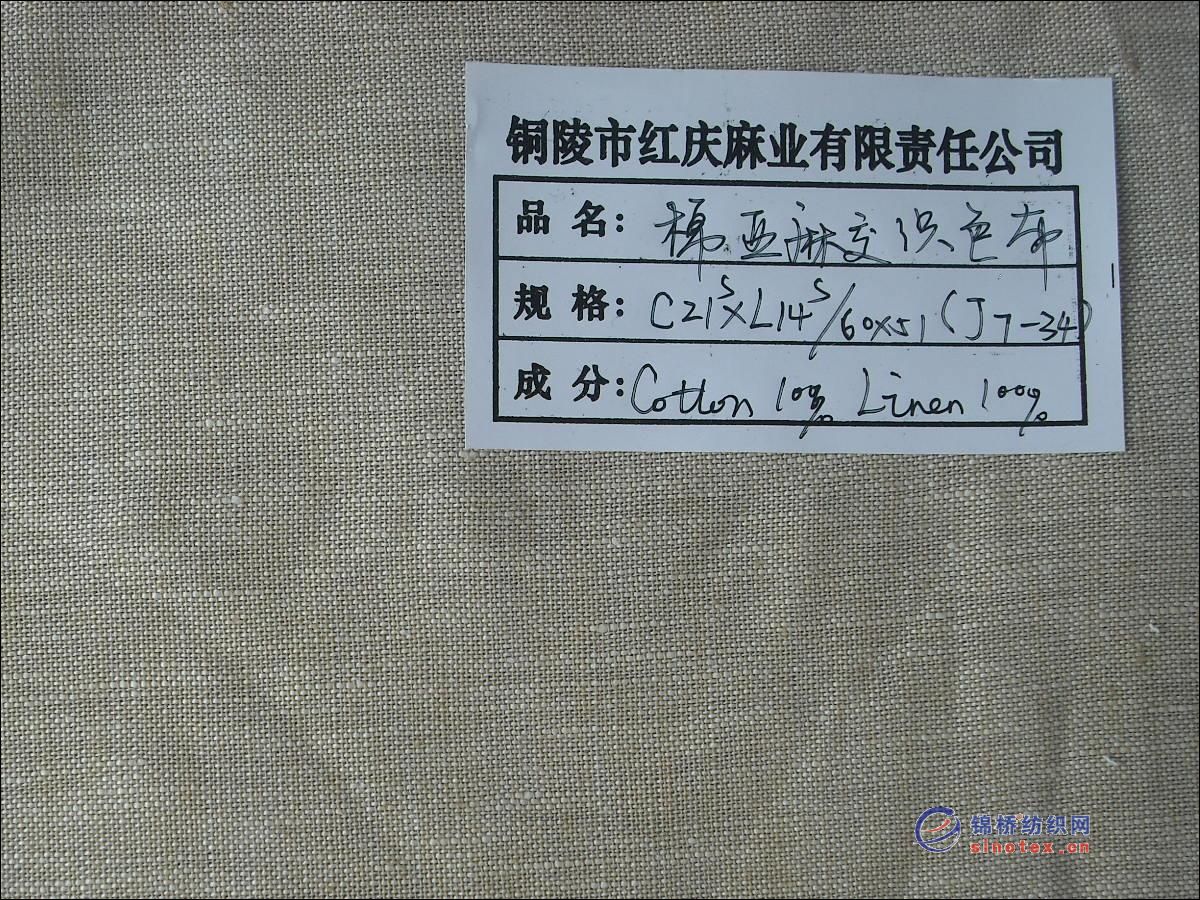 铜陵市红庆麻业有限责任公司
品 名: 棉亚麻交织色布
规 格: C21ˢ×L14ˢ/60×51(J7-34)
成 分: Cotton 100% Linen 100%
锦桥纺织网
sinotex.cn